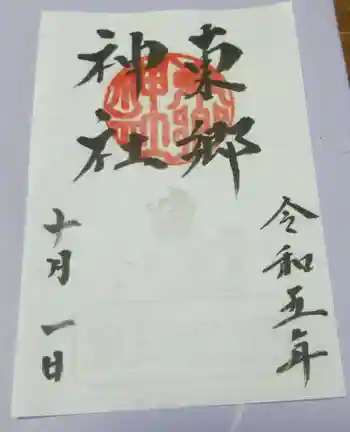 東郷
神社
令和五年
十月一日